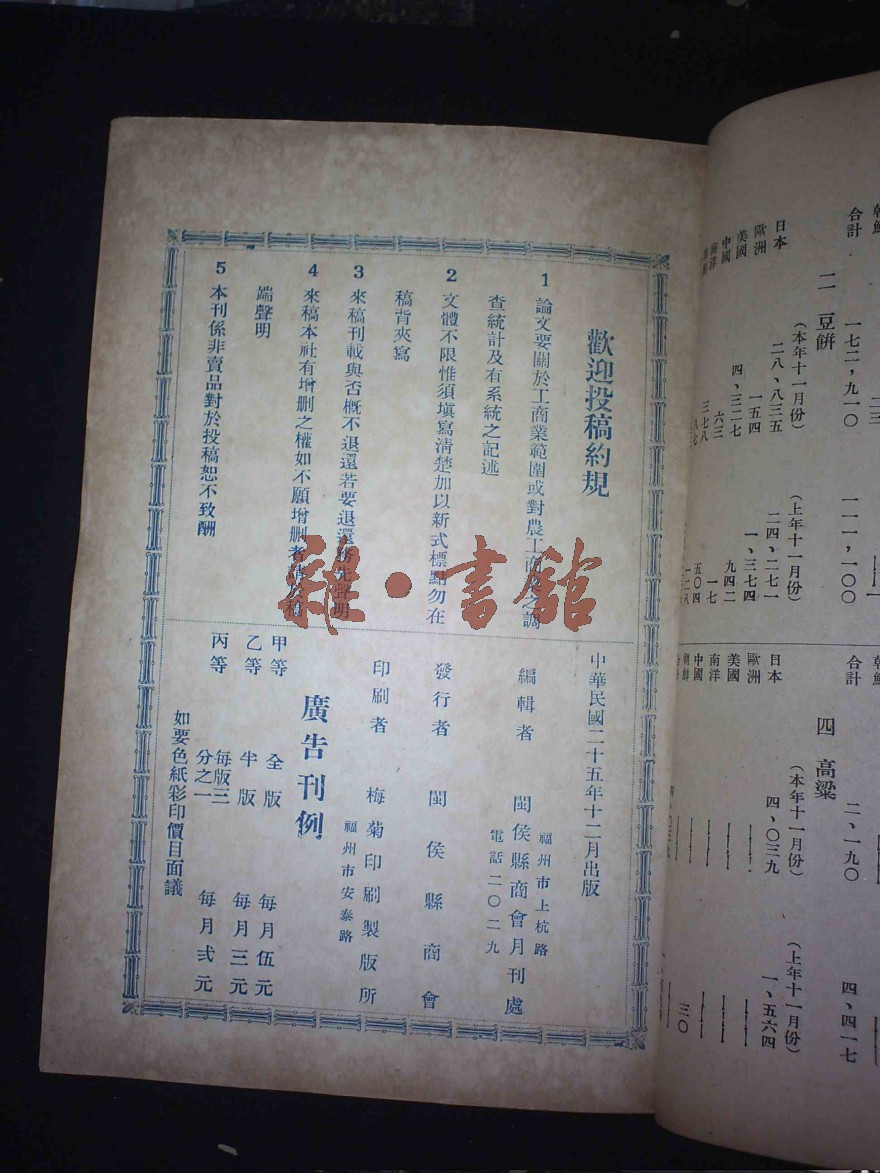 朝鮮
合計 一七二，九一〇 一一一，一〇〇
二 豆餅
（本年十一月份） （上年十一月份）
日本 二八、八三五 二四、二七一
歐洲 一五四 一、三七四
美國 四、三二七 九四二
中國 六三 一七
南洋 三七八 五〇四
朝鮮
合計 二、一九〇 四、四一七
四 高粱
（本年十一月份） （上年十一月份）
日本 四、〇三九 一、五六四
歐洲
美國
南洋
中國
朝鮮 三〇
歡迎投稿約規
1 論文要關於工商業範圍或對農工商業之調
查統計及有系統之記述
2 文體不限惟須填寫清楚加以新式標點勿在
稿背夾寫
3 來稿刊載與否概不退還若要退還務先聲明
4 來稿本社有增刪之權如不願增刪者請於稿
端聲明
5 本刊係非賣品對於投稿恕不致酬
中華民國二十五年十二月出版
編輯者 閩侯縣商會月刊處
福州市上杭路
電話二〇二九
發行者 閩侯縣商會
印刷者 梅菊印刷製版所
福州市安泰路
廣告刊例
甲等 全版 每月伍元
乙等 半版 每月三元
丙等 每版三分之一 每月貳元
如要色紙彩印價目面議
雜·書館